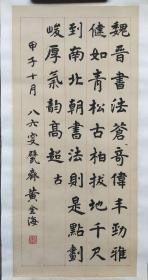 魏晉書法蒼奇偉丰勁雅
健如青松古柏拔地千尺
到南北朝書法則是點劃
峻厚氣韵高超 古
甲子十月 八六叟甓齋黄金海